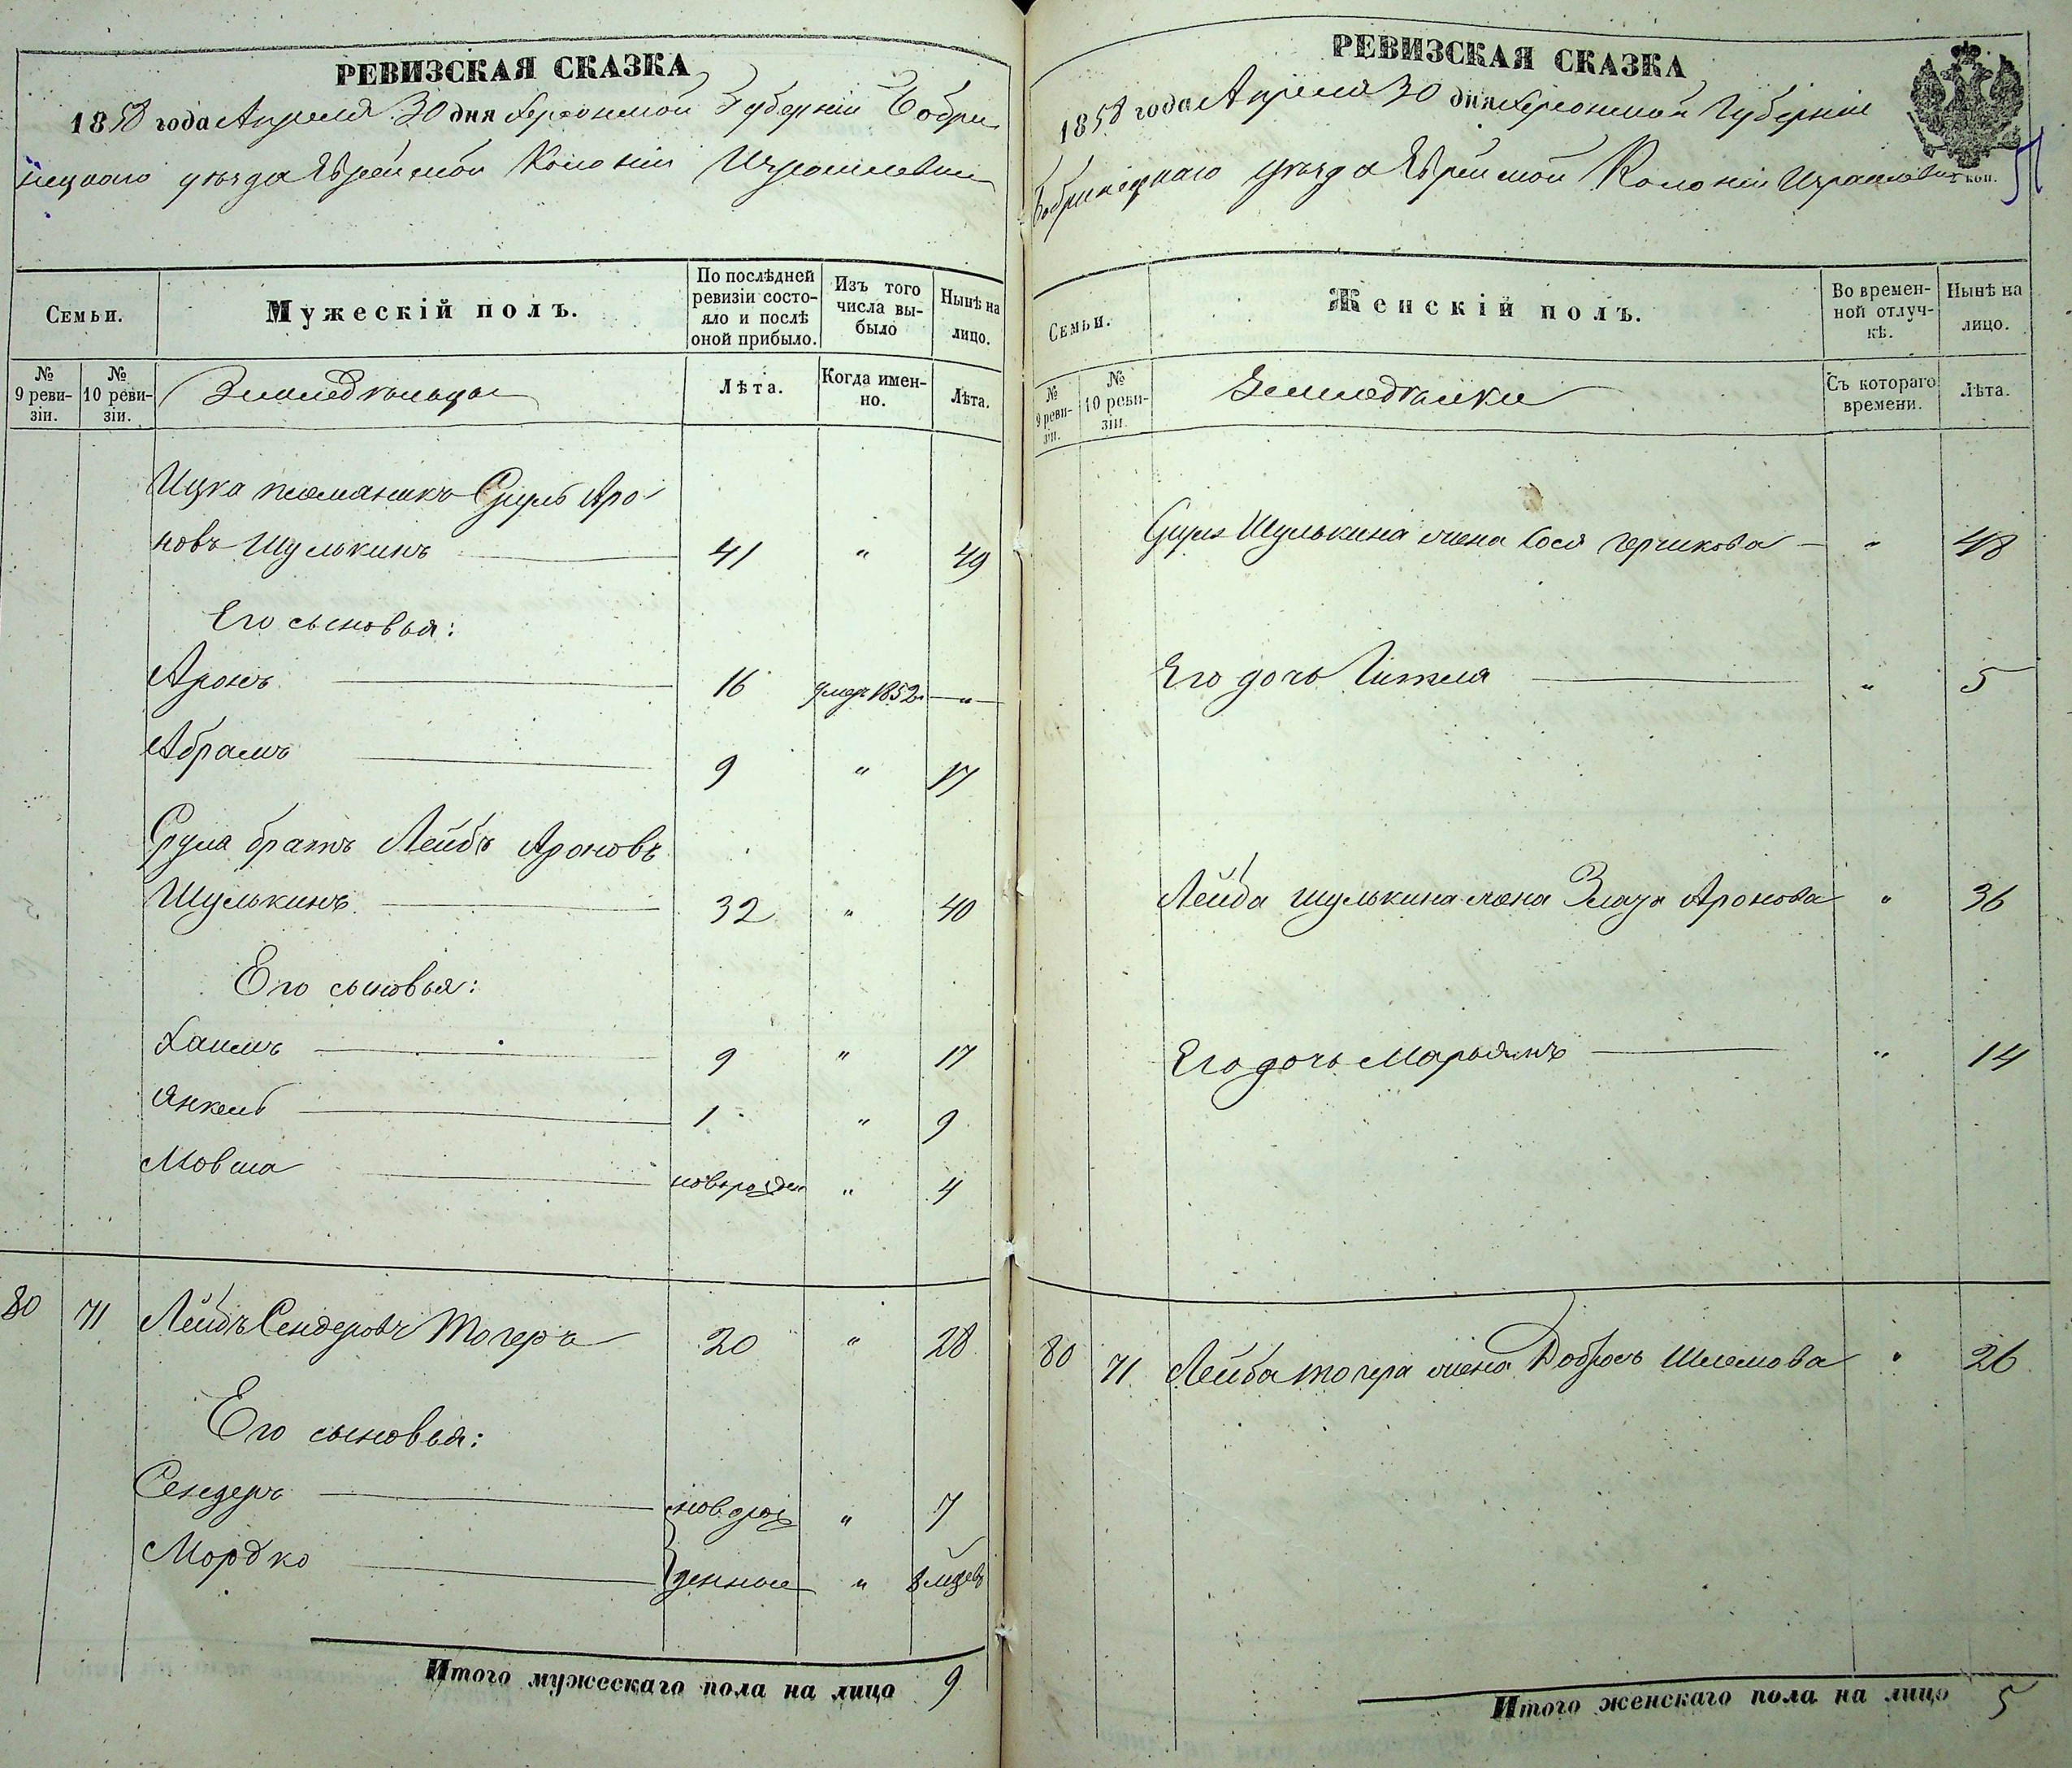 РЕВИЗСКАЯ СКАЗКА
1858 года Апреля 30 дня Херсонской Губерніи Бобри
нецкаго уѣзда Еврейской Колоніи Израилевки
Семьи.
Мужескій полъ.
По послѣдней ревизіи состо-
яло и послѣ оной прибыло.
Изъ того числа вы-
было
Нынѣ на лицо.
№ 9 реви-
зіи.
№ 10 реви-
зіи.
Земледѣльцы
Лѣта.
Когда имен-
но.
Лѣта.
Ицка племяникъ Сруль Аро
новъ Шулькинъ 41 " 49
Его сыновья:
Аронъ 16 умеръ 1852 "
Абрамъ 9 " 17
Срула братъ Лейбъ Ароновъ
Шулькинъ 32 " 40
Его сыновья:
Хаимъ 9 " 17
Янкель 1 " 9
Мовша новорожден " 4
80 71 Лейбъ Сендеровъ Тогеръ 20 " 28
Его сыновья:
Сендеръ новорож " 7
Мордко денные " 8 мцевъ
Итого мужескаго пола на лицо 9
РЕВИЗСКАЯ СКАЗКА
1858 года Апреля 30 дня Херсонской Губерніи
Бобринецкаго уѣзда Еврейской Колоніи Израилевки
коп.
Семьи.
Женскій полъ.
Во времен-
ной отлуч-
кѣ.
Нынѣ на лицо.
№ 9 реви-
зіи.
№ 10 реви-
зіи.
Земледѣлки
Съ котораго времени.
Лѣта.
Сруля Шулькина жена Сося Гершкова " 48
Его дочь Гитля " 5
Лейба Шулькина жена Злата Аронова " 36
Его дочь Марьямъ " 14
80 71 Лейба Тогера жена Добрось Шлемова " 26
Итого женскаго пола на лицо 5